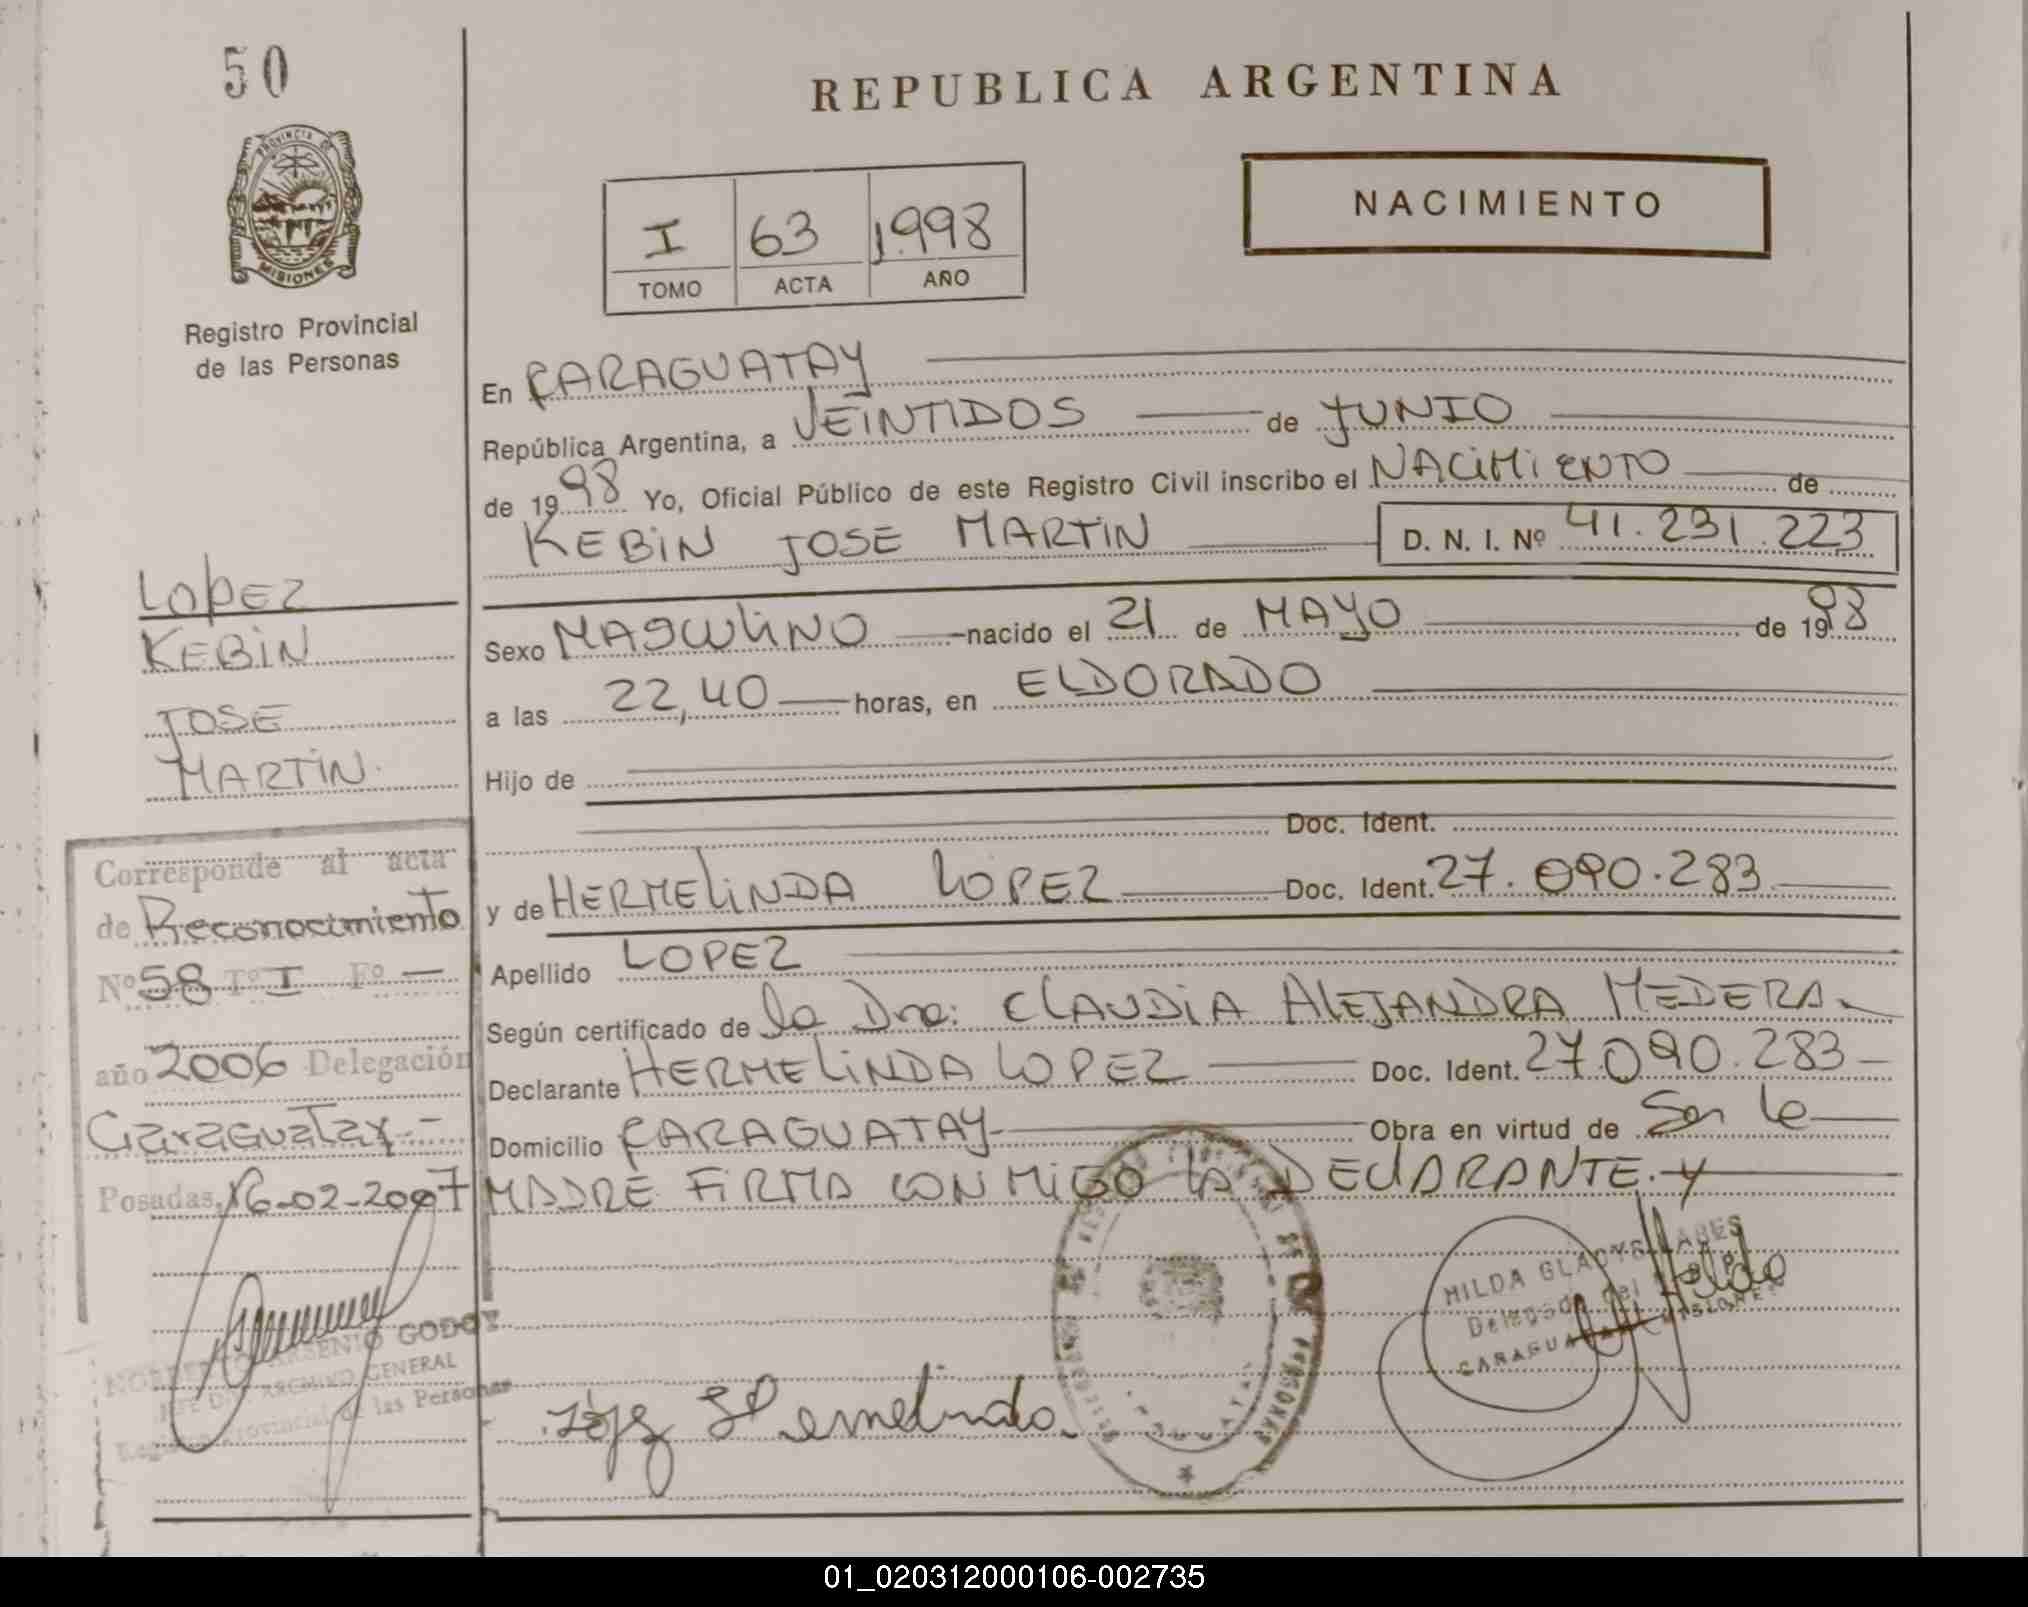 50
REPUBLICA ARGENTINA
PROVINCIA DE
MISIONES
Registro Provincial
de las Personas
NACIMIENTO
I 63 1.998
TOMO ACTA AÑO
En CARAGUATAY
República Argentina, a VEINTIDOS de JUNIO
de 1998 Yo, Oficial Público de este Registro Civil inscribo el NACIMIENTO de
KEBIN JOSE MARTIN D. N. I. Nº 41.231.223
LOPEZ
KEBIN
JOSE
MARTIN.
Sexo MASCULINO nacido el 21 de MAYO de 1998
a las 22,40 horas, en ELDORADO
Hijo de
Doc. Ident.
y de HERMELINDA LOPEZ Doc. Ident. 27.090.283
Apellido LOPEZ
Según certificado de la Dra: CLAUDIA ALEJANDRA MEDERA
Declarante HERMELINDA LOPEZ Doc. Ident. 27.090.283
Domicilio CARAGUATAY Obra en virtud de Ser la
MADRE FIRMA CONMIGO LA DECLARANTE.-
Corresponde al acta
de Reconocimiento
Nº 58 Tº I Fº -
año 2006 Delegación
Caraguatay.-
Posadas, 16-02-2007
NORBERTO ARSENIO GODOY
ARCHIVO GENERAL
Registro Provincial de las Personas
HILDA GLADYS
Delegada del
CARAGUATAY MISIONES
PERSONAS
Hermelinda
01_020312000106-002735